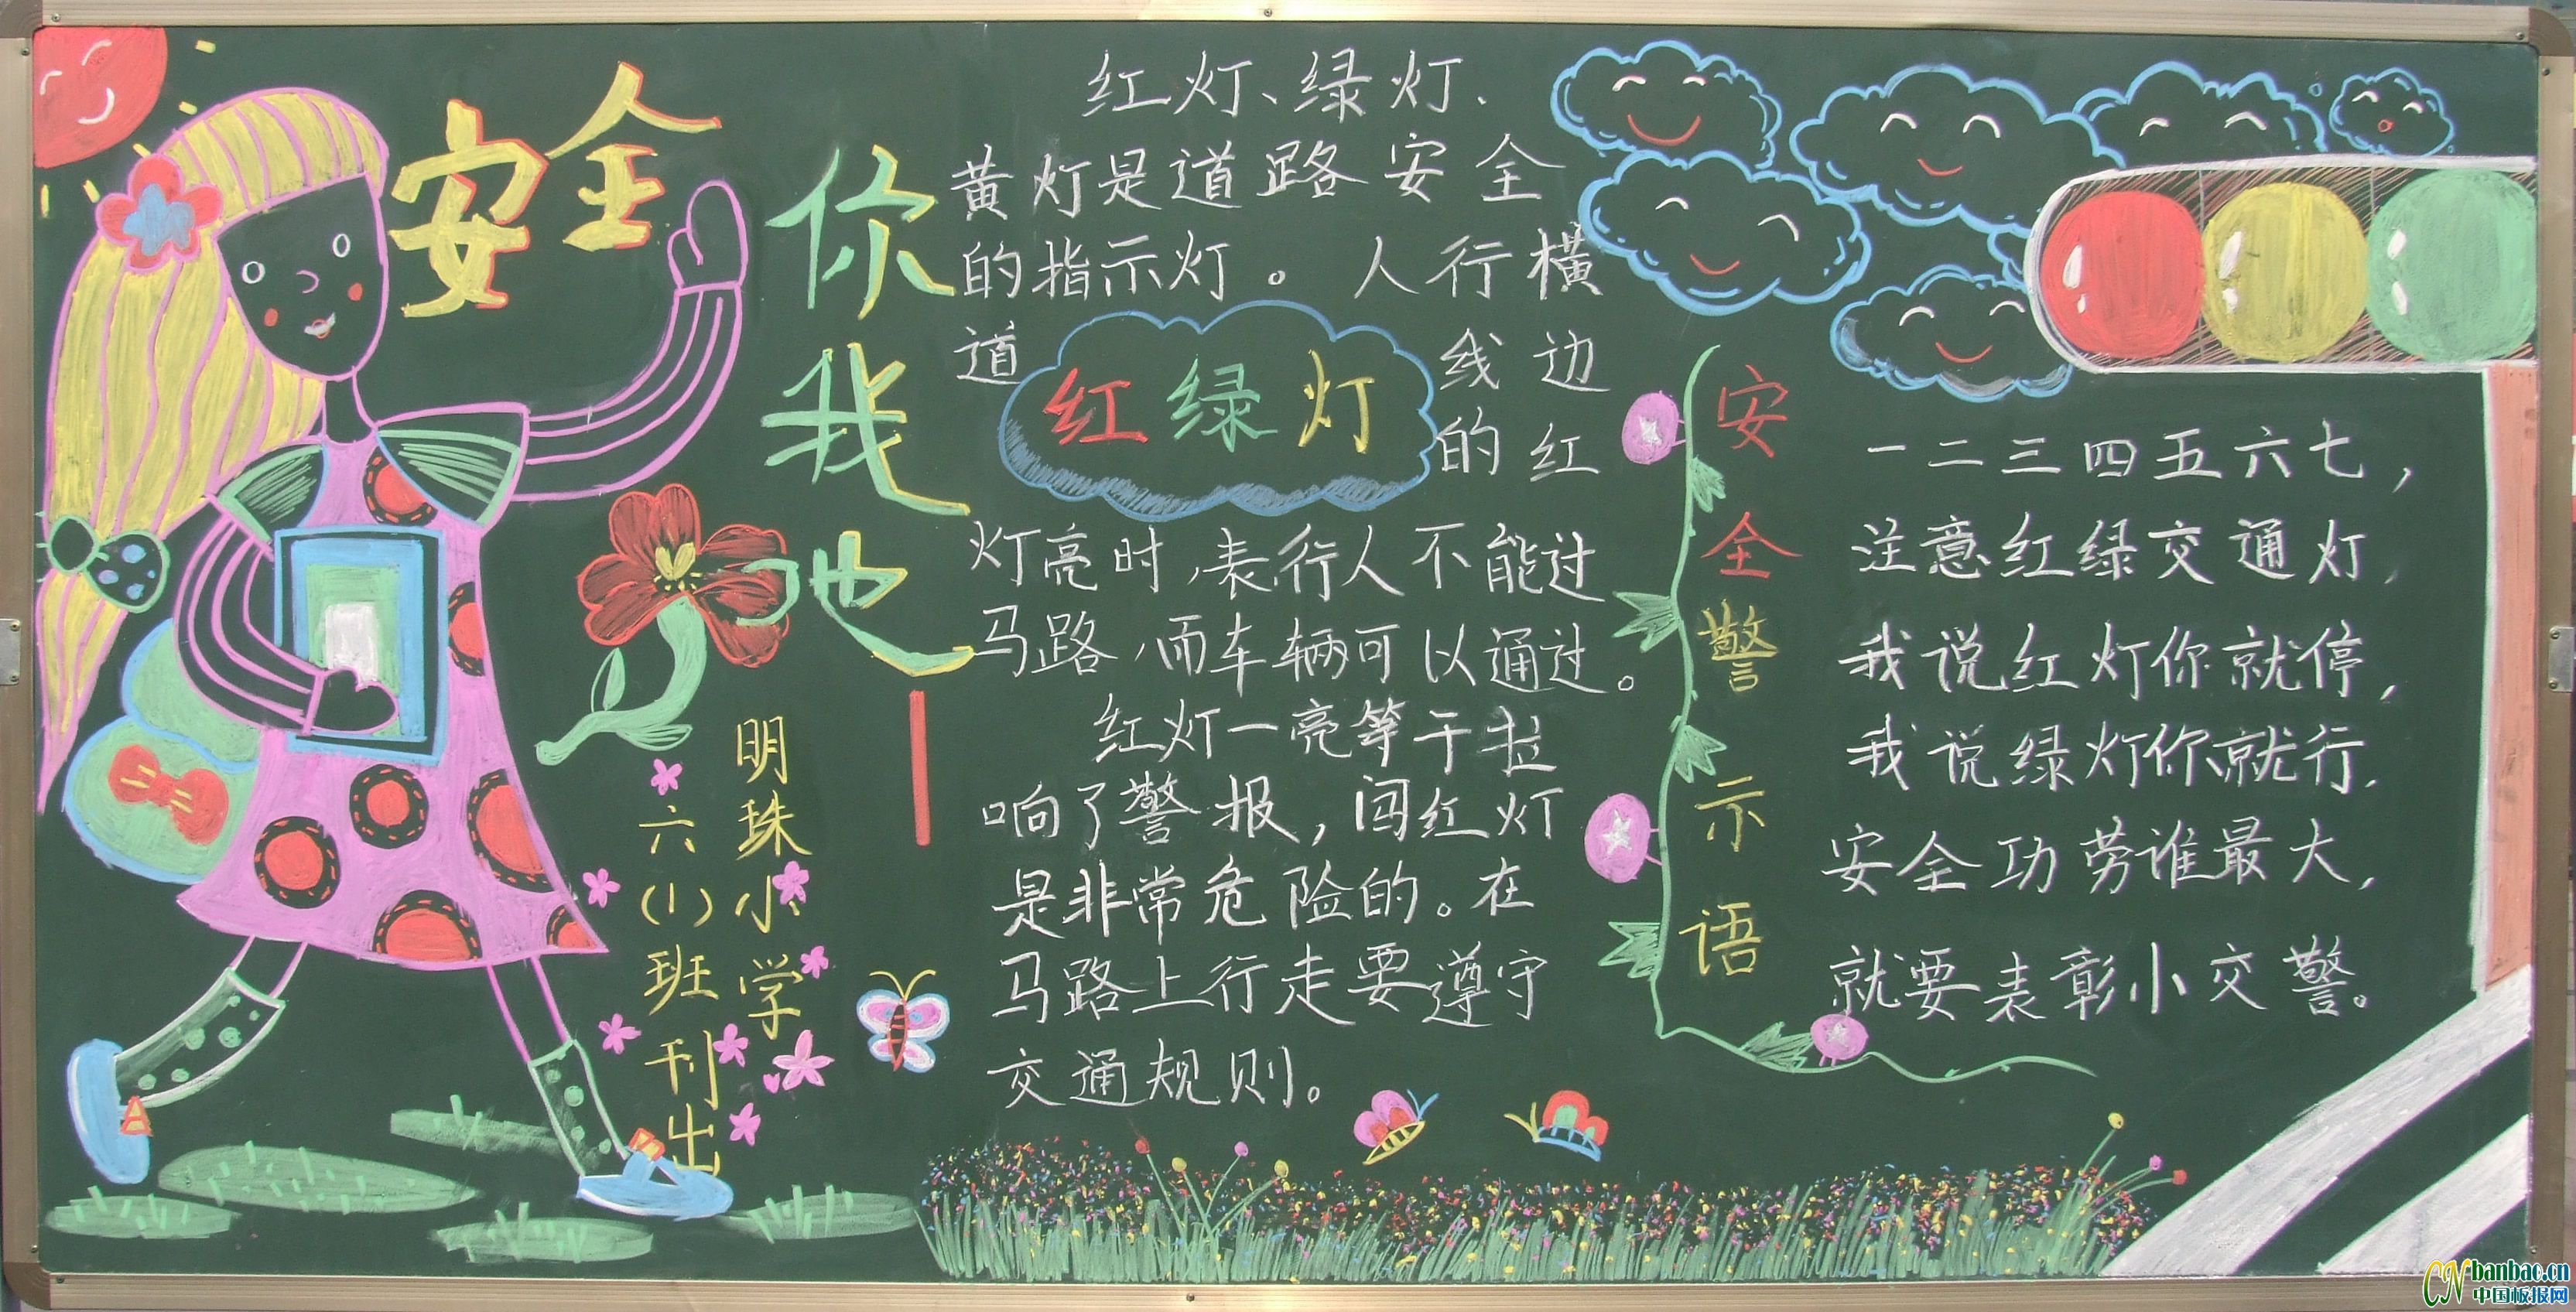 安全
你我他
明珠小学
六(1)班刊出
红灯、绿灯、
黄灯是道路安全
的指示灯。人行横
道 线边
的红
红绿灯
灯亮时,表行人不能过
马路,而车辆可以通过。
红灯一亮等于拉
响了警报,闯红灯
是非常危险的。在
马路上行走要遵守
交通规则。
安全警示语
一二三四五六七,
注意红绿交通灯,
我说红灯你就停,
我说绿灯你就行.
安全功劳谁最大,
就要表彰小交警。
CN banbao.cn
中国板报网